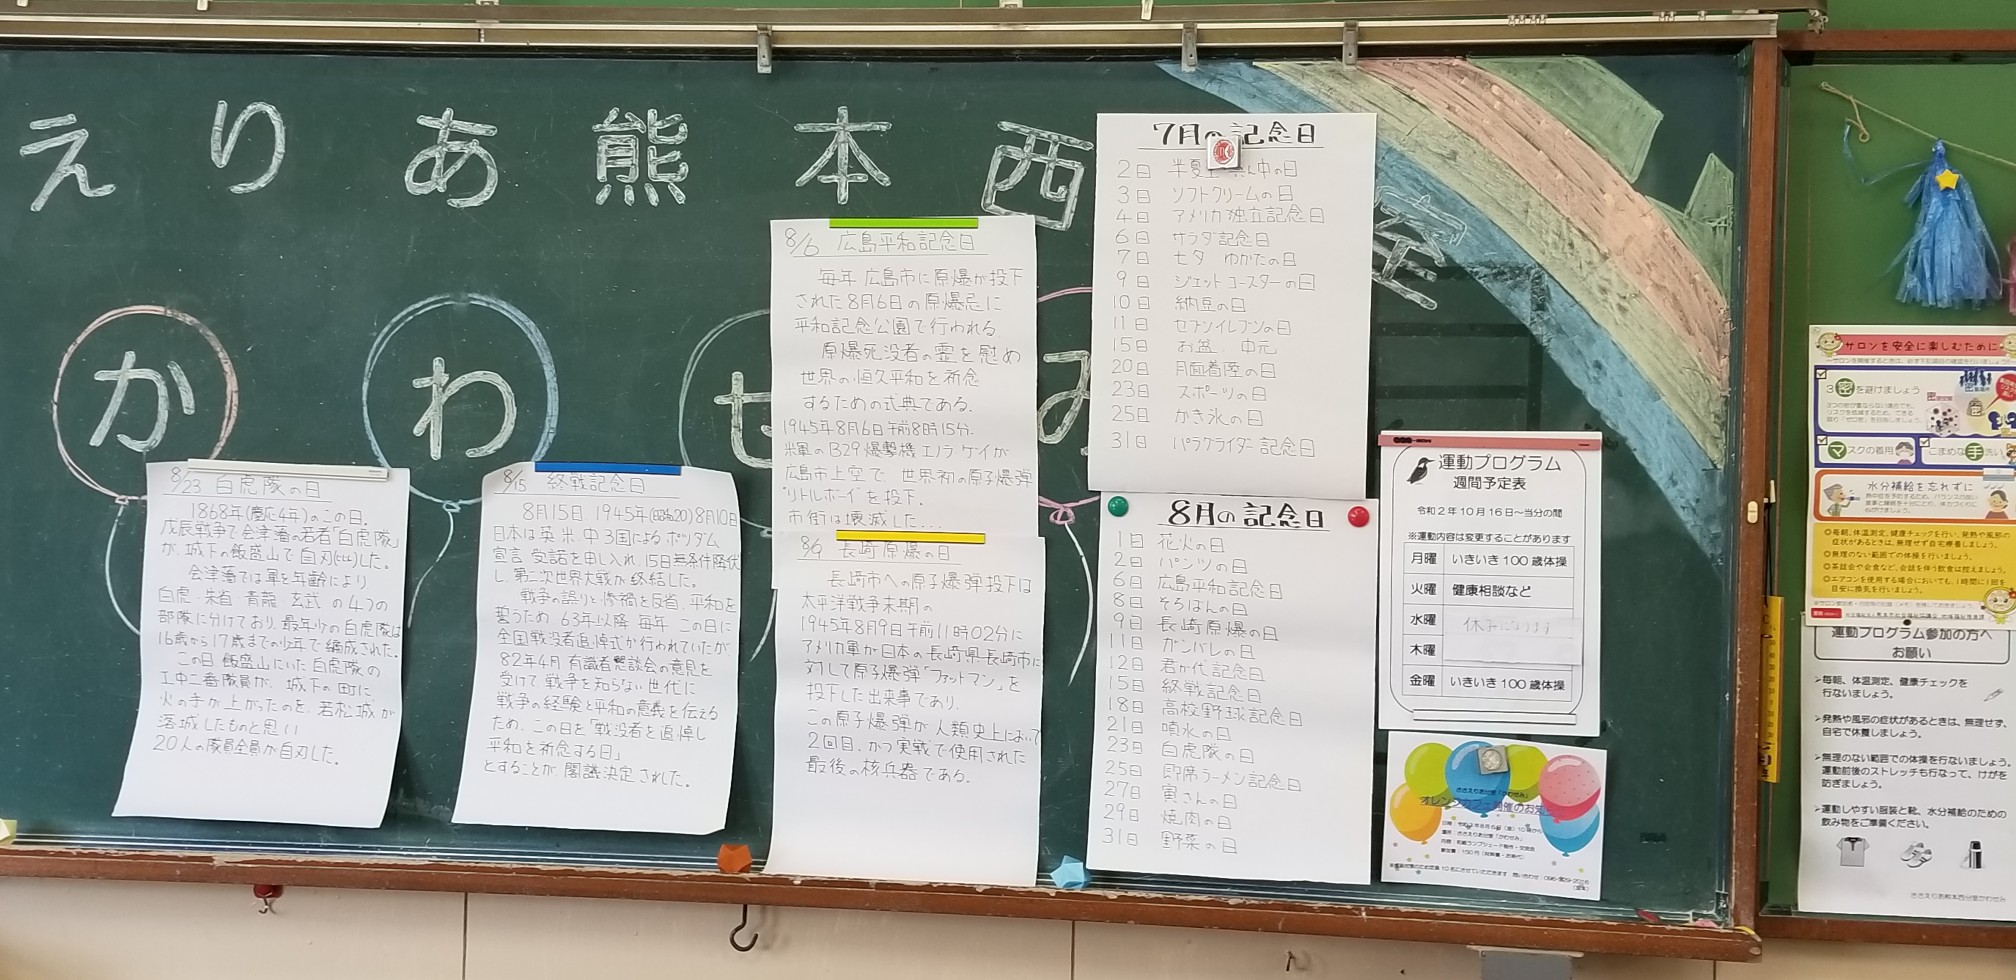 えりあ熊本西
かわせみ
8/23 白虎隊の日
1868年(慶応4年)のこの日。
戊辰戦争で会津藩の若者「白虎隊」
が、城下の飯盛山で自刃(じじん)した。
会津藩では軍を年齢により
白虎・朱雀 青龍 玄武 の4つの
部隊に分けており、最年少の白虎隊は
16歳から17歳までの少年で編成された。
この日 飯盛山にいた白虎隊の
士中二番隊員が、城下の町に
火の手が上がったのを、若松城が
落城したものと思い
20人の隊員全員が自刃した。
8/15 終戦記念日
8月15日 1945年(昭和20)8月10日
日本は英.米.中 3国によるポツダム
宣言 受諾を申し入れ、15日無条件降伏
し、第二次世界大戦が終結した。
戦争の誤りと惨禍を反省、平和を
誓うため、63年以降 毎年、この日に
全国戦没者追悼式が行われていたが
82年4月 有識者懇談会の意見を
受けて、戦争を知らない世代に
戦争の経験と平和の意義を伝える
ため、この日を「戦没者を追悼し
平和を祈念する日」
とすることが、閣議決定された。
8/6 広島平和記念日
毎年 広島市に原爆が投下
された8月6日の原爆忌に
平和記念公園で行われる。
原爆死没者の霊を慰め
世界の恒久平和を祈念
するための式典である。
1945年8月6日 午前8時15分.
米軍のB29爆撃機 エノラ ゲイが
広島市上空で、世界初の原子爆弾
"リトルボーイ"を投下。
市街は壊滅した...
8/9 長崎原爆の日
長崎市への原子爆弾投下は
太平洋戦争末期の
1945年8月9日午前11時02分に
アメリカ軍が日本の長崎県長崎市に
対して原子爆弾「ファットマン」を
投下した出来事であり、
この原子爆弾が人類史上において
2回目、かつ実戦で使用された
最後の核兵器である。
7月の記念日
2日 半夏生
3日 ソフトクリームの日
4日 アメリカ独立記念日
6日 サラダ記念日
7日 七夕 ゆかたの日
9日 ジェットコースターの日
10日 納豆の日
11日 セブンイレブンの日
15日 お盆. 中元
20日 月面着陸の日
23日 スポーツの日
25日 かき氷の日
31日 パラグライダー記念日
8月の記念日
1日 花火の日
2日 パンツの日
6日 広島平和記念日
8日 そろばんの日
9日 長崎原爆の日
11日 ガンバレの日
12日 君が代記念日
15日 終戦記念日
18日 高校野球記念日
21日 噴水の日
23日 白虎隊の日
25日 即席ラーメン記念日
27日 寅さんの日
29日 焼肉の日
31日 野菜の日
運動プログラム
週間予定表
令和2年10月16日～当分の間
※運動内容は変更することがあります
月曜 いきいき100歳体操
火曜 健康相談など
水曜 休みになります
木曜
金曜 いきいき100歳体操
ささえりあ分室「かわせみ」
オレンジカフェ開催のお知
サロンを安全に楽しむために
3密を避けましょう
マスクの着用
こまめな手洗い
水分補給を忘れずに
◎毎朝、体温測定、健康チェックを行い、発熱や風邪の
症状があるときは、無理せず自宅療養しましょう。
◎無理のない範囲での体操を行いましょう。
◎茶話会や会食など、会話を伴う飲食は控えましょう。
◎エアコンを使用する場合においても、1時間に1回を
目安に換気を行いましょう。
運動プログラム参加の方へ
お願い
➢毎朝、体温測定、健康チェックを
行ないましょう。
➢発熱や風邪の症状があるときは、無理せず、
自宅で休養しましょう。
➢無理のない範囲での体操を行ないましょう。
運動前後のストレッチも行なって、けがを
防ぎましょう。
➢運動しやすい服装と靴、水分補給のための
飲み物をご準備ください。
ささえりあ熊本西分室かわせみ